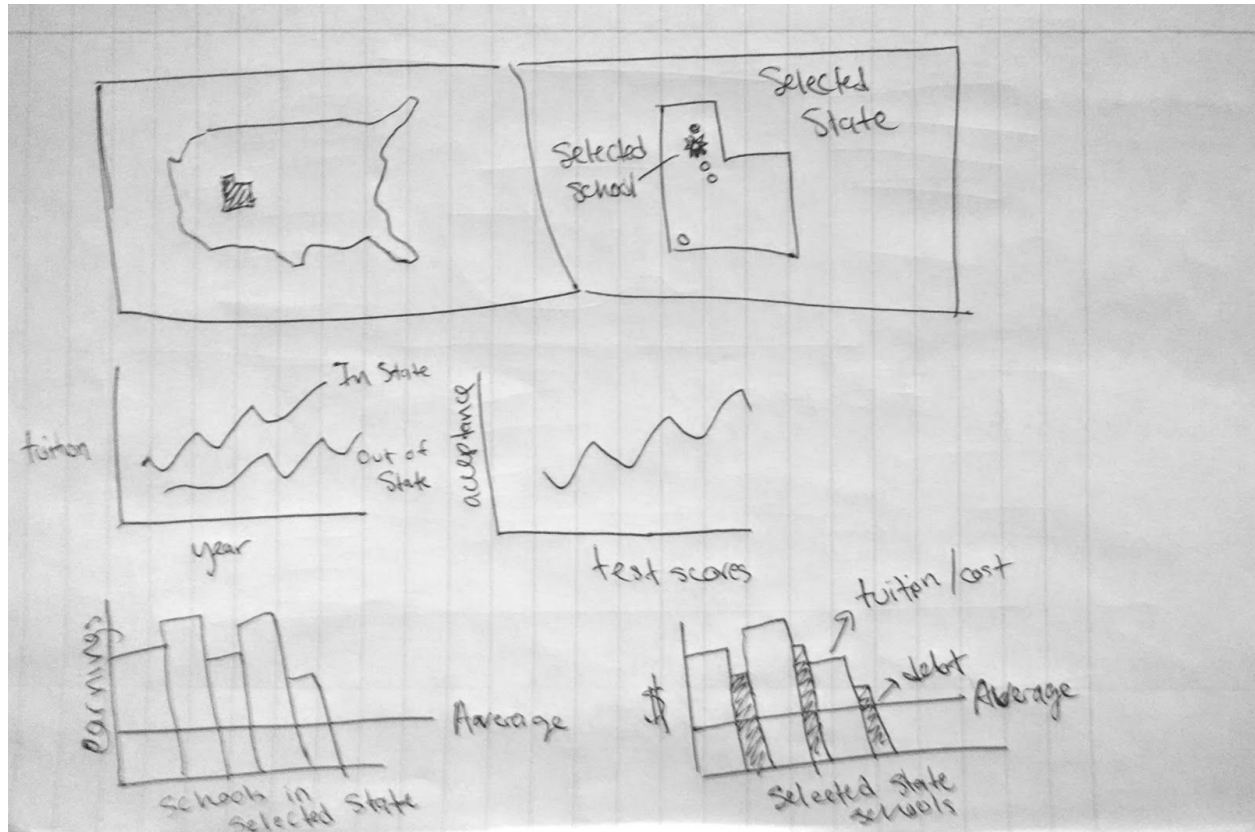 Selected
State
Selected
school
In State
tuition
Out of
State
year
acceptance
test scores
earnings
Aaverage
schools in
selected state
tuition/cost
debt
$
Average
selected state
schools